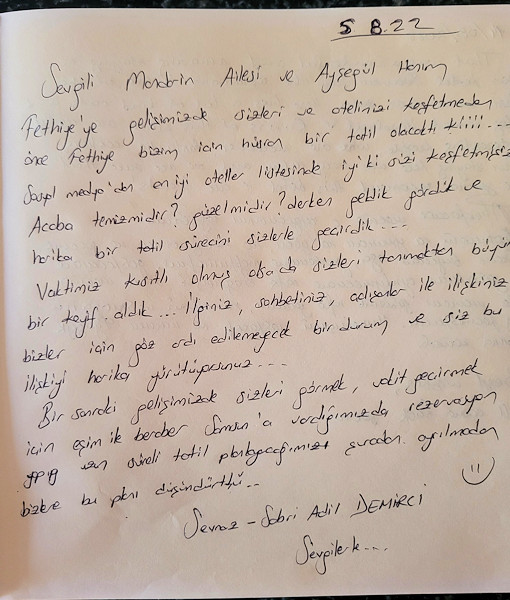 5 8.22
Sevgili Mandarin Ailesi ve Ayşegül Hanım
Fethiye'ye gelişimizde sizleri ve otelinizi keşfetmeden
önce Fethiye bizim için hüsran bir tatil olacaktı kiii...
Sosyal medya'dan en iyi oteller listesinde iyi ki sizi keşfetmişiz
Acaba temizmidir? güzelmidir? derken geldik gördük ve
harika bir tatil sürecini sizlerle geçirdik...
Vaktimiz kısıtlı olmuş olsada sizleri tanımaktan büyük
bir keyif aldık... İlginiz, sohbetiniz, çalışanlar ile ilişkiniz
bizler için göz ardı edilemeyecek bir durum ve siz bu
ilişkiyi harika yürütüyorsunuz...
Bir sonraki gelişimizde sizleri görmek, vakit geçirmek
için eşim ile beraber Samsun'a vardığımızda rezervasyon
yapıp uzun süreli tatil planlayacağımızı şuradan ayrılmadan
bizlere bu planı düşündürttü..
Sevnaz - Sabri Adil DEMİRCİ
Sevgilerle...